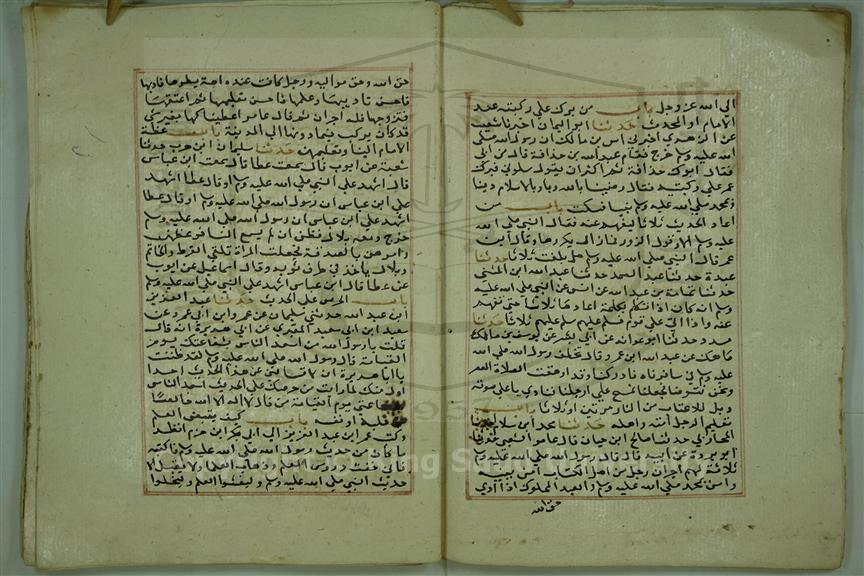 الى الله عز وجل باب من برك على ركبتيه عند
الامام او المحدث حدثنا ابو اليمان اخبرنا شعيب
عن الزهري اخبرني انس بن مالك ان رسول الله صلى
الله عليه وسلم خرج فقام عبدالله بن حذافة فقال من ابي
فقال ابوك حذافة ثم اكثر ان يقول سلوني فبرك
عمر على ركبتيه فقال رضينا بالله ربا وبالاسلام دينا
وبمحمد صلى الله عليه وسلم نبيا فسكت باب من
اعاد الحديث ثلاثا ليفهم عنه فقال النبي صلى الله
عليه وسلم الا وقول الزور فما زال يكررها وقال ابن
عمر قال النبي صلى الله عليه وسلم هل بلغت ثلاثا حدثنا
عبدة حدثنا عبد الصمد حدثنا عبدالله ابن المثنى
حدثنا ثمامة بن عبدالله عن انس عن النبي صلى الله عليه
وسلم انه كان اذا تكلم بكلمة اعادها ثلاثا حتى تفهم
عنه واذا اتى على قوم فسلم عليهم سلم عليهم ثلاثا حدثنا
مسدد حدثنا ابو عوانة عن ابي بشر عن يوسف بن مالك
ماهك عن عبدالله ابن عمرو قال تخلف رسول الله صلى الله
عليه وسلم في سافرناه فادركنا وقد ارهقت الصلاة العصر
ونحن نتوضا فجعلنا نمسح على ارجلنا فنادى باعلى صوته
ويل للاعقاب من النار مرتين او ثلاثا باب
تعليم الرجل أمته واهله حدثنا محمد ابن سلام حدثنا
المحاربي حدثنا صالح ابن حيان قال عامر الشعبي حدثنا
ابو بردة عن ابيه قال قال رسول الله صلى الله عليه وسلم
ثلاثة لهم اجران رجل من اهل الكتاب آمن بنبيه
وامن بمحمد صلى الله عليه وسلم والعبد المملوك اذا أدى
حق الله
حق الله وحق مواليه ورجل كانت عنده امة يطوها فادبها
فاحسن تاديبها وعلمها فاحسن تعليمها ثم اعتقها
فتزوجها فله اجران ثم قال عامر اعطيناكها بغير شي
قد كان يركب فيما دونها الى المدينة باب عظة
الامام النسا وتعليمهن حدثنا سليمان ابن حرب حدثنا
شعبة عن ايوب قال سمعت عطا قال سمعت ابن عباس
قال اشهد على النبي صلى الله عليه وسلم او قال عطا اشهد
على ابن عباس ان رسول الله صلى الله عليه وسلم او قال عطا
اشهد على ابن عباس ان رسول الله صلى الله عليه وسلم
خرج ومعه بلال فظن ان لم يسمع النسا فوعظهن
وامرهن بالصدقة فجعلت المراة تلقي القرط والخاتم
وبلال ياخذ في طرف ثوبه وقال اسماعيل عن ايوب
عن عطا قال ابن عباس اشهد على النبي صلى الله عليه وسلم
باب الحرص على الحديث حدثنا عبد العزيز
ابن عبد الله حدثني سليمان عن عمرو ابن ابي عمرو عن
سعيد ابن ابي سعيد المقبري عن ابي هريرة انه قال
قلت يا رسول الله من اسعد الناس بشفاعتك يوم
القيامة قال رسول الله صلى الله عليه وسلم لقد ظننت
يا ابا هريرة ان لا يسالني عن هذا الحديث احدا
اول منك لما رايت من حرصك على الحديث اسعد الناس
بشفاعتي يوم القيامة من قال لا اله الا الله خالصا
من قلبه او نفسه باب كيف يقبض العلم
وكتب عمر ابن عبد العزيز الى ابي بكر ابن حزم انظر
ما كان من حديث رسول الله صلى الله عليه وسلم فاكتبه
فاني خفت دروس العلم وذهاب العلما ولا يقبل الا
حديث النبي صلى الله عليه وسلم وليفشوا العلم وليجلسوا